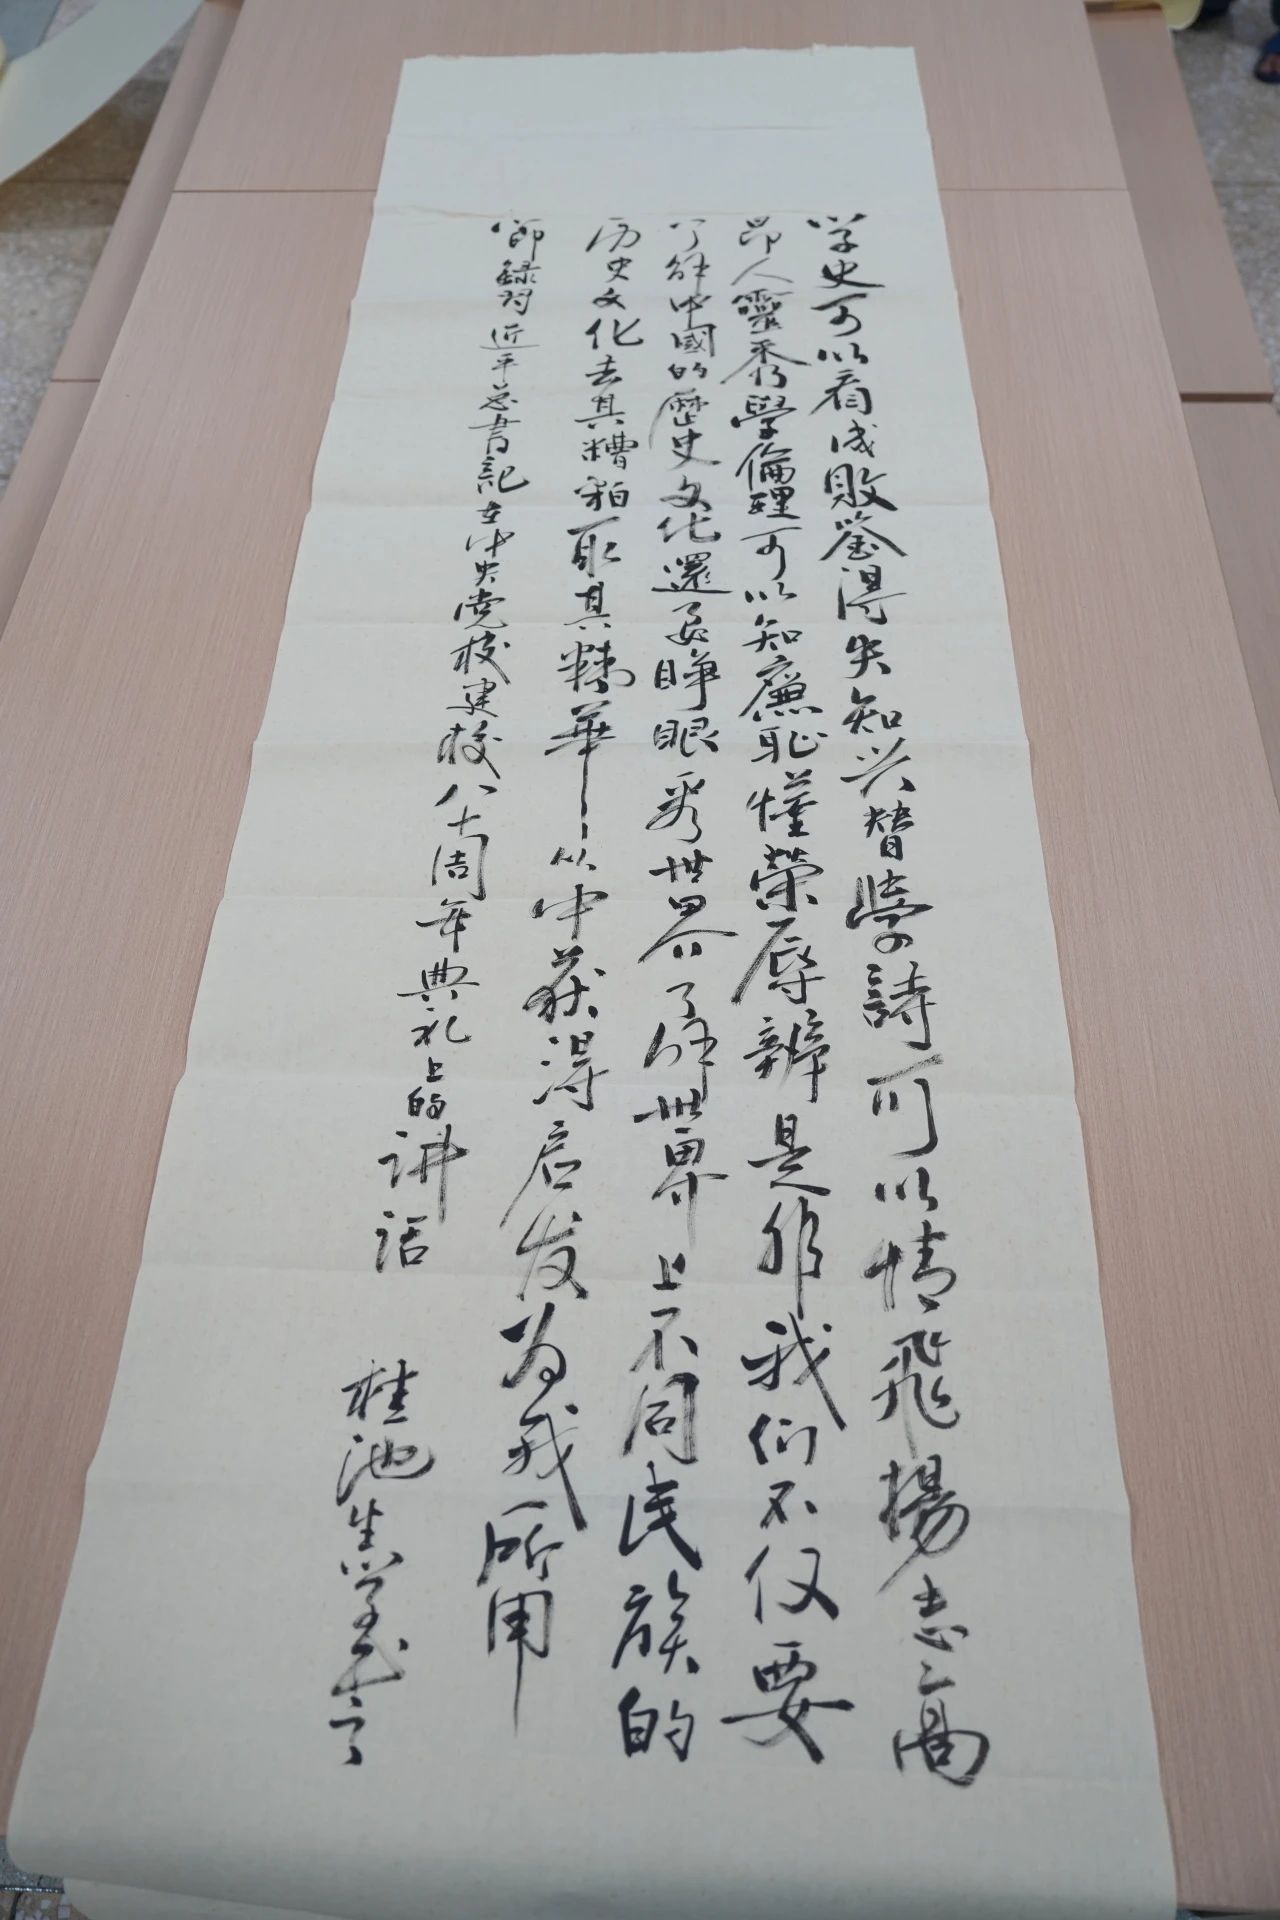 学史可以看成败鉴得失知兴替学詩可以情飛揚志高
昂人靈秀學倫理可以知廉恥懂榮辱辨是非我们不仅要
了解中國的歷史文化還要睁眼看世界了解世界上不同民族的
历史文化去其糟粕取其精華从中获得启发为我所用
節録习近平总書記在中央党校建校八十周年典礼上的讲话
桂池生学